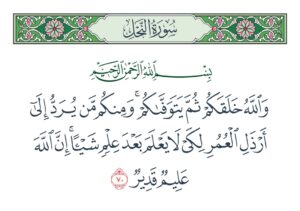 سُورَةُ النَّحْلِ
بِسْمِ اللَّهِ الرَّحْمَٰنِ الرَّحِيمِ
وَاللَّهُ خَلَقَكُمْ ثُمَّ يَتَوَفَّىٰكُمْ ۚ وَمِنكُم مَّن يُرَدُّ إِلَىٰ
أَرْذَلِ الْعُمُرِ لِكَيْ لَا يَعْلَمَ بَعْدَ عِلْمٍ شَيْـًٔا ۚ إِنَّ اللَّهَ
عَلِيمٌ قَدِيرٌ ٧٠